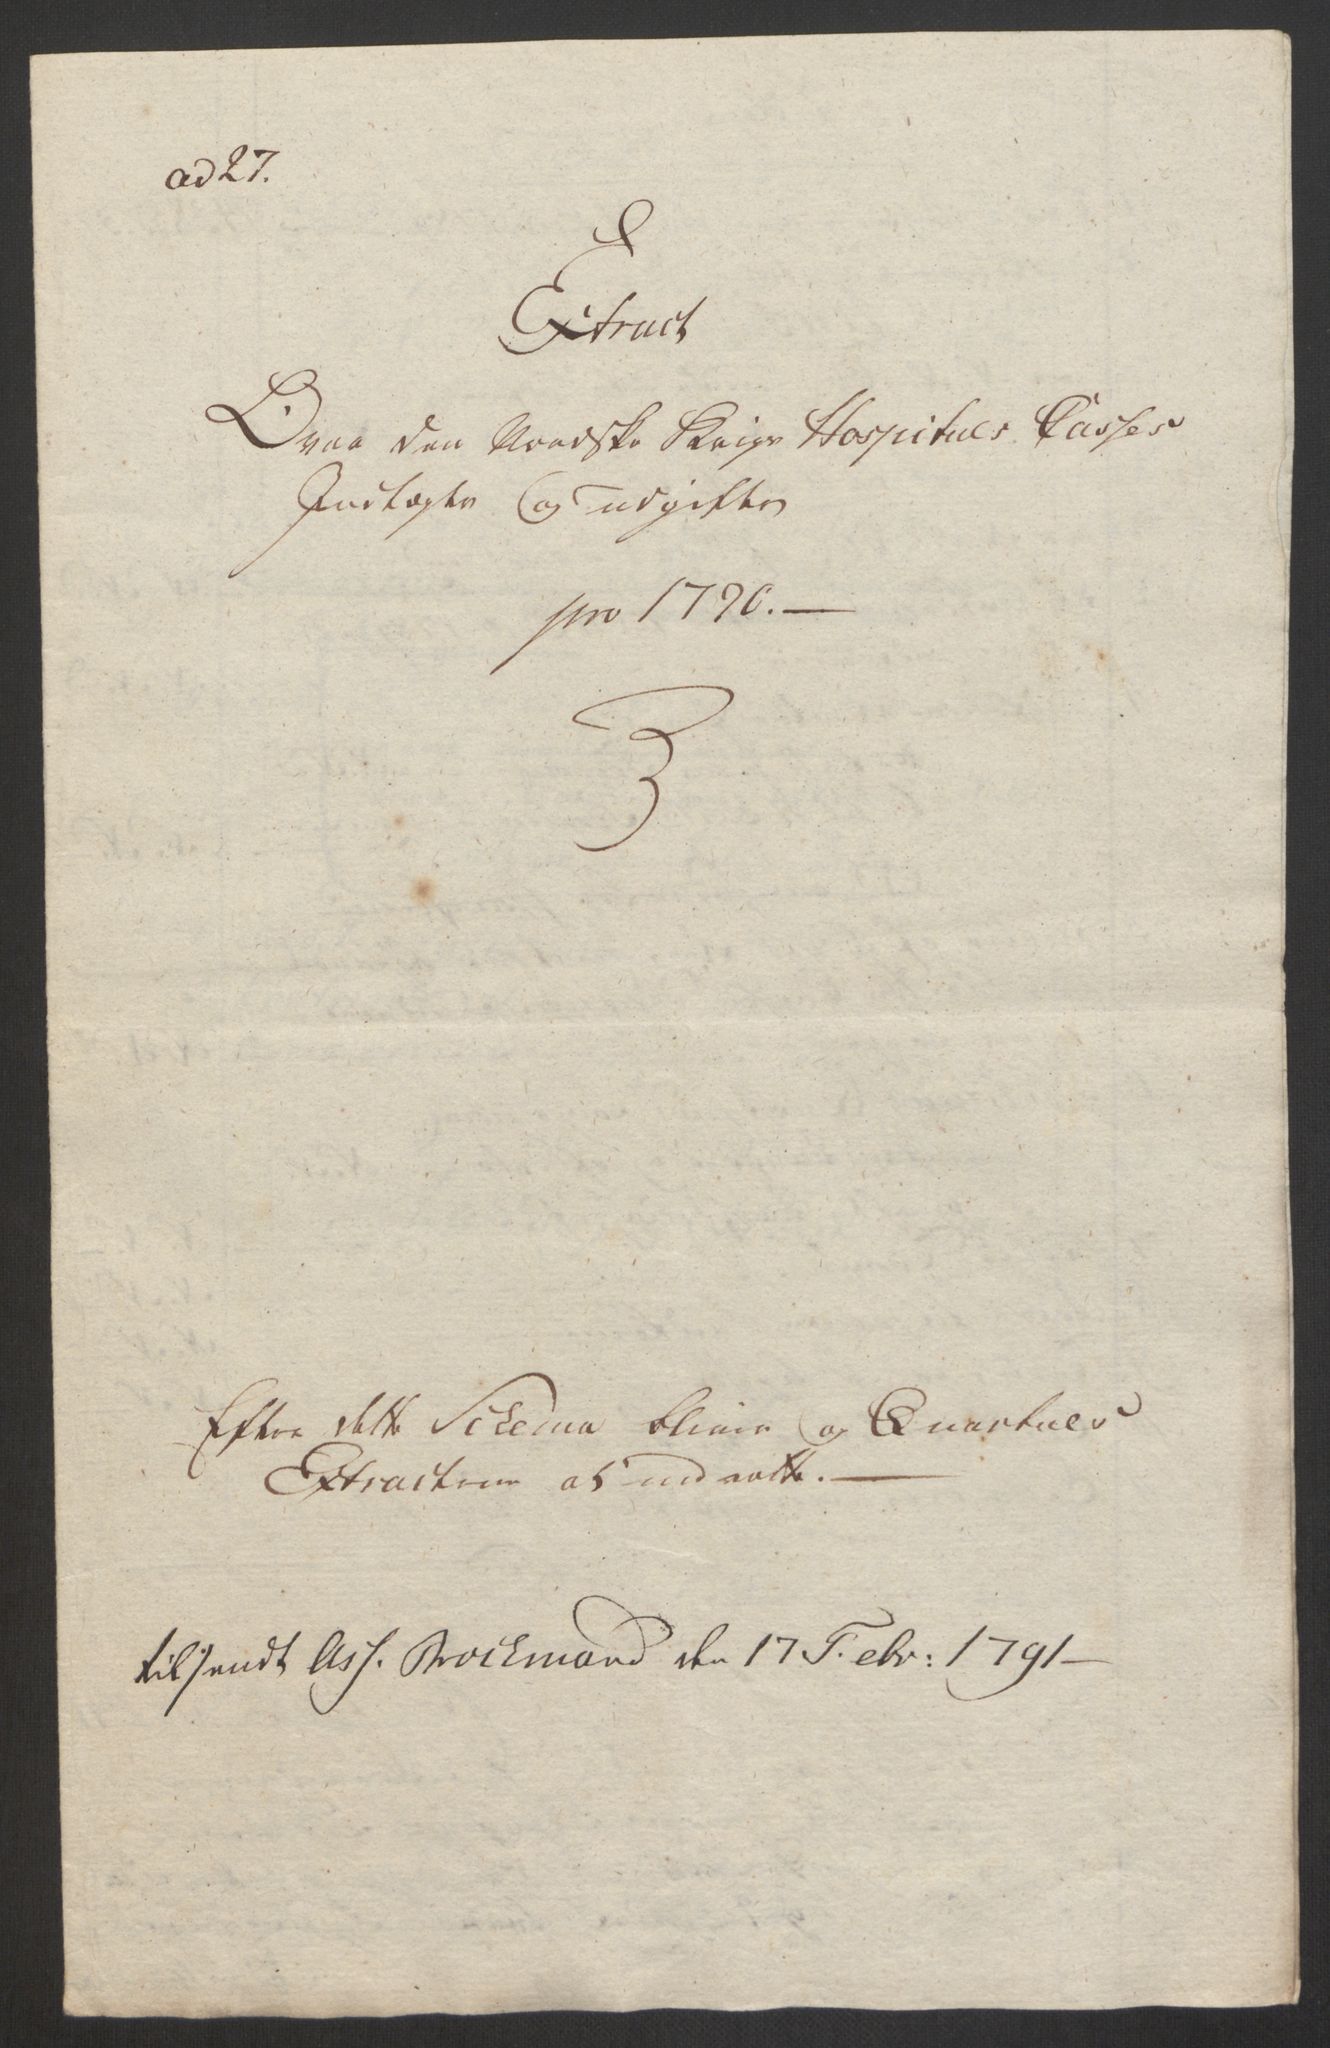 ad 27.
Extract
Over den Nordske Krigs Hospitals Casses
Indtægter og udgifter
pro 1790.
3
Efter dette Schema bliver og Qvartals
Extracterne at indrette.
tilsendt Ass. Brockmand den 17 Febr: 1791